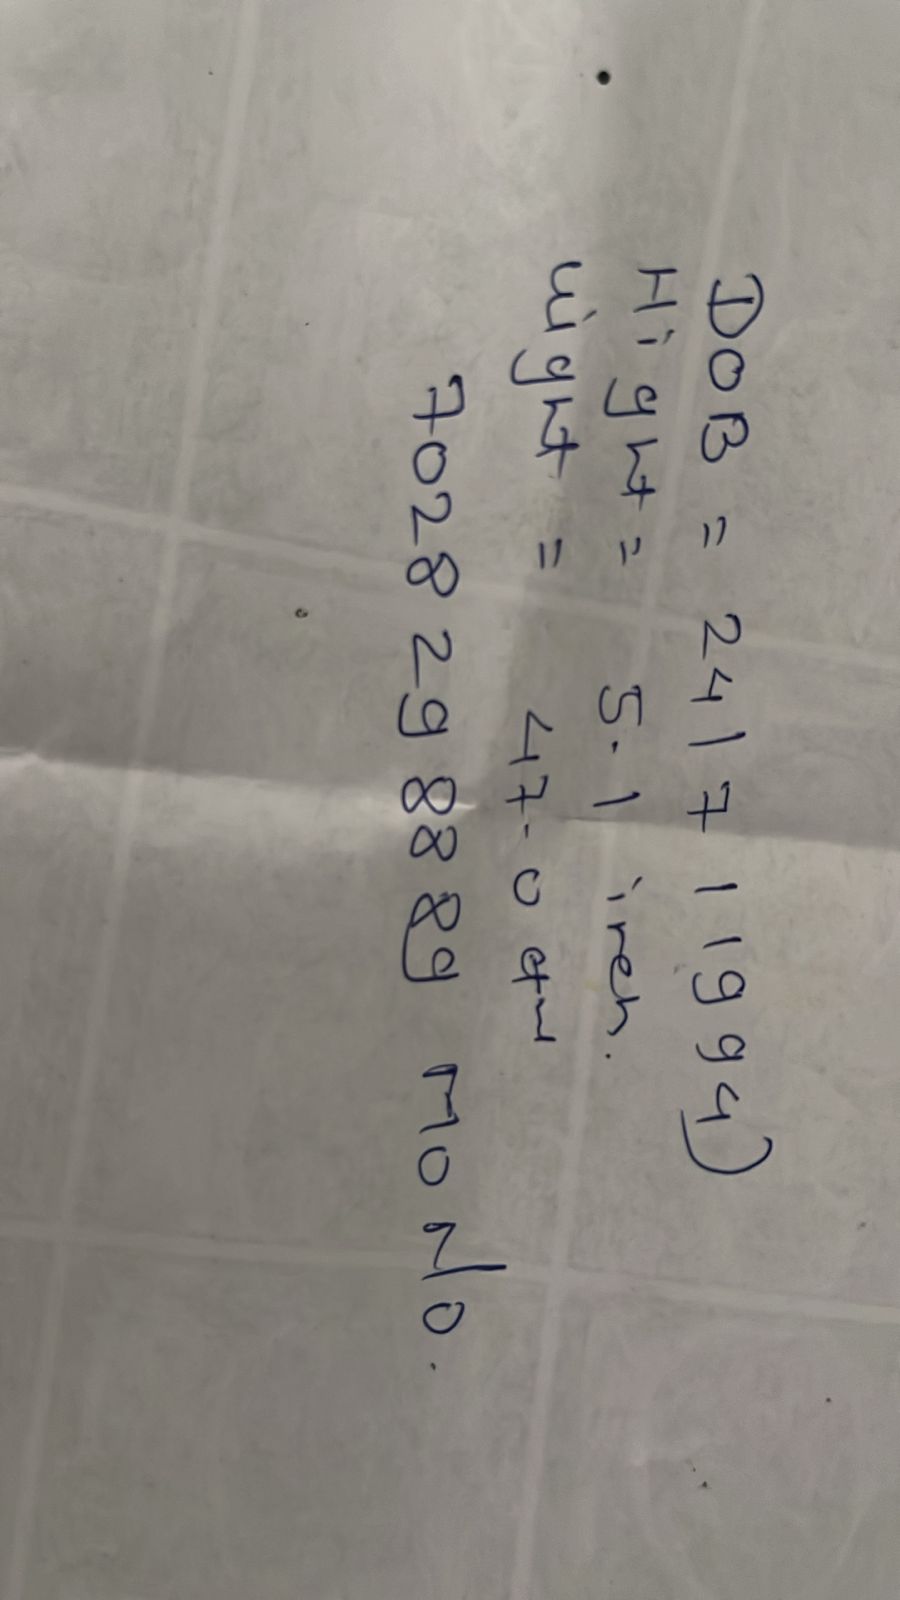 DOB = 24/7/1994)
Hight = 5.1 inch.
wight = 47.0
7028 29 8889 MO NO.